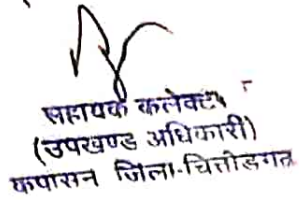 सहायक कलेक्टर
(उपखण्ड अधिकारी)
कपासन जिला-चित्तोडगढ